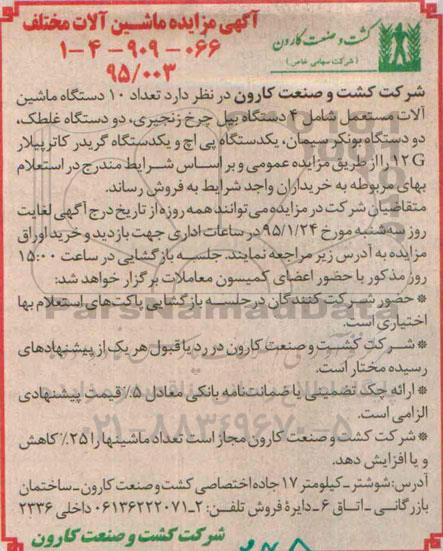 آگهی مزایده ماشین آلات مختلف
۱-۴-۹۰۹-۰۶۶
۹۵/۰۰۳
کشت و صنعت کارون
(شرکت سهامی خاص)
شرکت کشت و صنعت کارون در نظر دارد تعداد ۱۰ دستگاه ماشین
آلات مستعمل شامل ۴ دستگاه بیل چرخ زنجیری، دو دستگاه غلطک،
دو دستگاه بونکر سیمان، یکدستگاه پی آچ و یکدستگاه گریدر کاترپیلار
۱۲G را از طریق مزایده عمومی و بر اساس شرایط مندرج در استعلام
بهای مربوطه به خریداران واجد شرایط به فروش رساند.
متقاضیان شرکت در مزایده می‌توانند همه روزه از تاریخ درج آگهی لغایت
روز سه‌شنبه مورخ ۹۵/۱/۲۴ در ساعات اداری جهت بازدید و خرید اوراق
مزایده به آدرس زیر مراجعه نمایند. جلسه بازگشایی در ساعت ۱۵:۰۰
روز مذکور با حضور اعضای کمیسیون معاملات برگزار خواهد شد:
* حضور شرکت کنندگان در جلسه بازگشایی پاکت‌های استعلام بها
اختیاری است.
* شرکت کشت و صنعت کارون در رد یا قبول هر یک از پیشنهادهای
رسیده مختار است.
* ارائه چک تضمینی یا ضمانت‌نامه بانکی معادل ۵٪ قیمت پیشنهادی
الزامی است.
* شرکت کشت و صنعت کارون مجاز است تعداد ماشینها را ۲۵٪ کاهش
و یا افزایش دهد.
آدرس: شوشتر ـ کیلومتر ۱۷ جاده اختصاصی کشت و صنعت کارون ـ ساختمان
بازرگانی ـ اتاق ۶ ـ دایرهٔ فروش تلفن: ۲-۰۶۱۳۶۲۲۲۰۷۱ داخلی ۲۳۳۶
شرکت کشت و صنعت کارون
ParsNamadData
۰۲۱-۸۸۳۴۹۶۷۰-۵